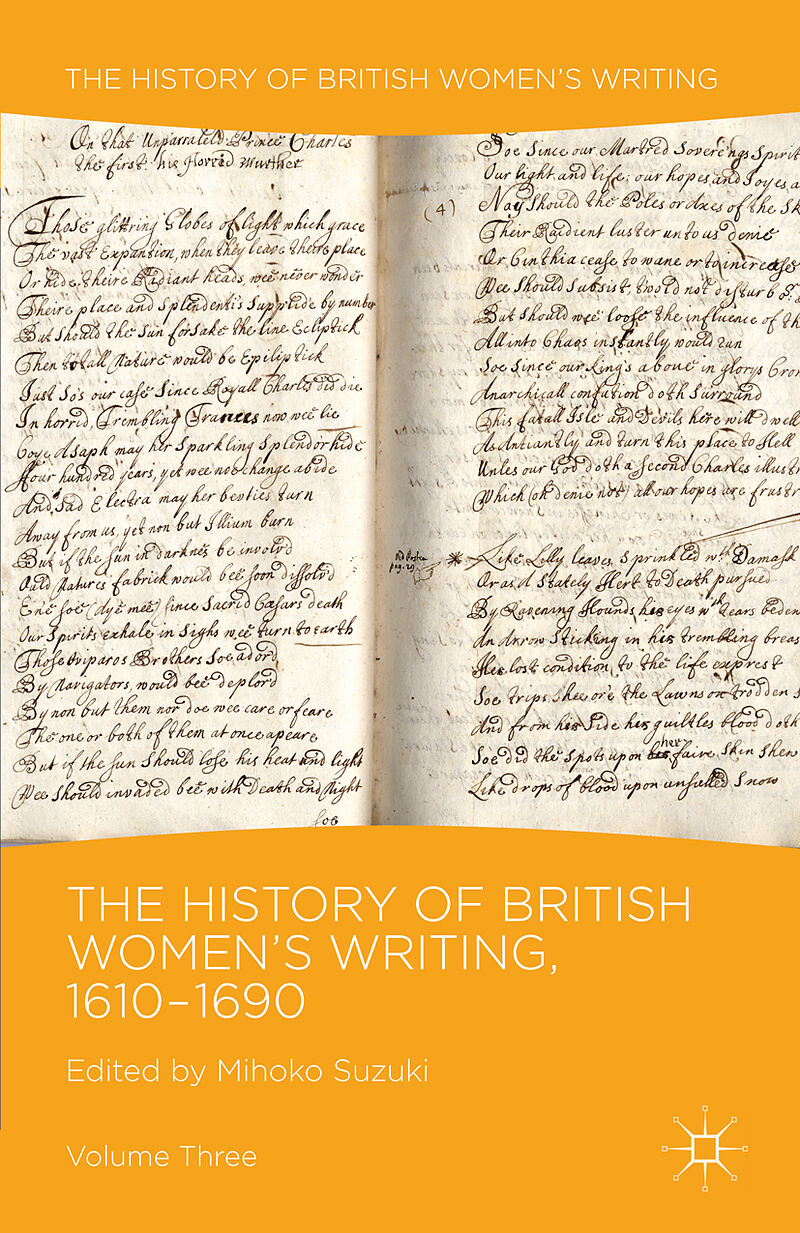 THE HISTORY OF BRITISH WOMEN'S WRITING
On that Unparraleld Prince Charles
the first: his Horred Murther
Those glittring Globes of light which grace
The vast Expantion, when they leave theire place
Or hide theire Radiant heads, wee never wonder
Theire place and Splendenti's Supplide by number
But should the Sun forsake the line Ecliptick
Then totall Nature would be Epiliptick
Just So's our case Since Royall Charles did die
In horrid, Trembling Trances now wee lie
Coye Asaph may her Sparkling Splendor hide
Four hundred years, yet wee noe change abide
And Sad Electra may her bevties turn
Away from us, yet non but Illium burn
But if the sun in darknes be involvd
Ould Natures fabrick would bee soon dissolvd
Ene soe (dye mee) Since Sacrid Cæsars death
Our Spirits exhale in Sighs wee turn to earth
Those Oviparos Brothers Soe adord
By Navigators, would bee deplord
By non but them nor doe wee care or feare
The one or both of them at once apeare
But if the sun Should lose his heat and light
Wee Should invaded bee with Death and Night
Soe
Soe Since our Martred Soverengs Spirit
Our light and life; our hopes and Joyes a
(4)
Nay Should the Poles or Axes of the Sk
Their Raidient luster unto us denie
Or Cinthia cease to wane or to increase
Wee Should Subsist two'ld not disturb o
But Should wee loose the influence of th
All into Chaos instantly would run
Soe Since our King's above in glorys Cro
Anarchicall confution doth Surround
This fatall Isle and Devils here will dwell
As Antiantly and turn this place to Hell
Unles our God doth a Second Charles illustr
Which (oh denie not) all our hopes are frustr
pag: 29
* Like Lilly leaves Sprinkled wth Damask
Or as a Stately Hert to Death pursued
By Ravening Hounds his eyes wth tears beden
An Arrow Sticking in his trembling breas
His lost condition to the life exprest
Soe trips Shee ore the Lawns on trodden s
And from his Side his guiltles blood doth
Soe did the Spots upon her faire Skin Shew
Like drops of blood upon unsulled Snow
THE HISTORY OF BRITISH
WOMEN'S WRITING,
1610–1690
Edited by Mihoko Suzuki
Volume Three